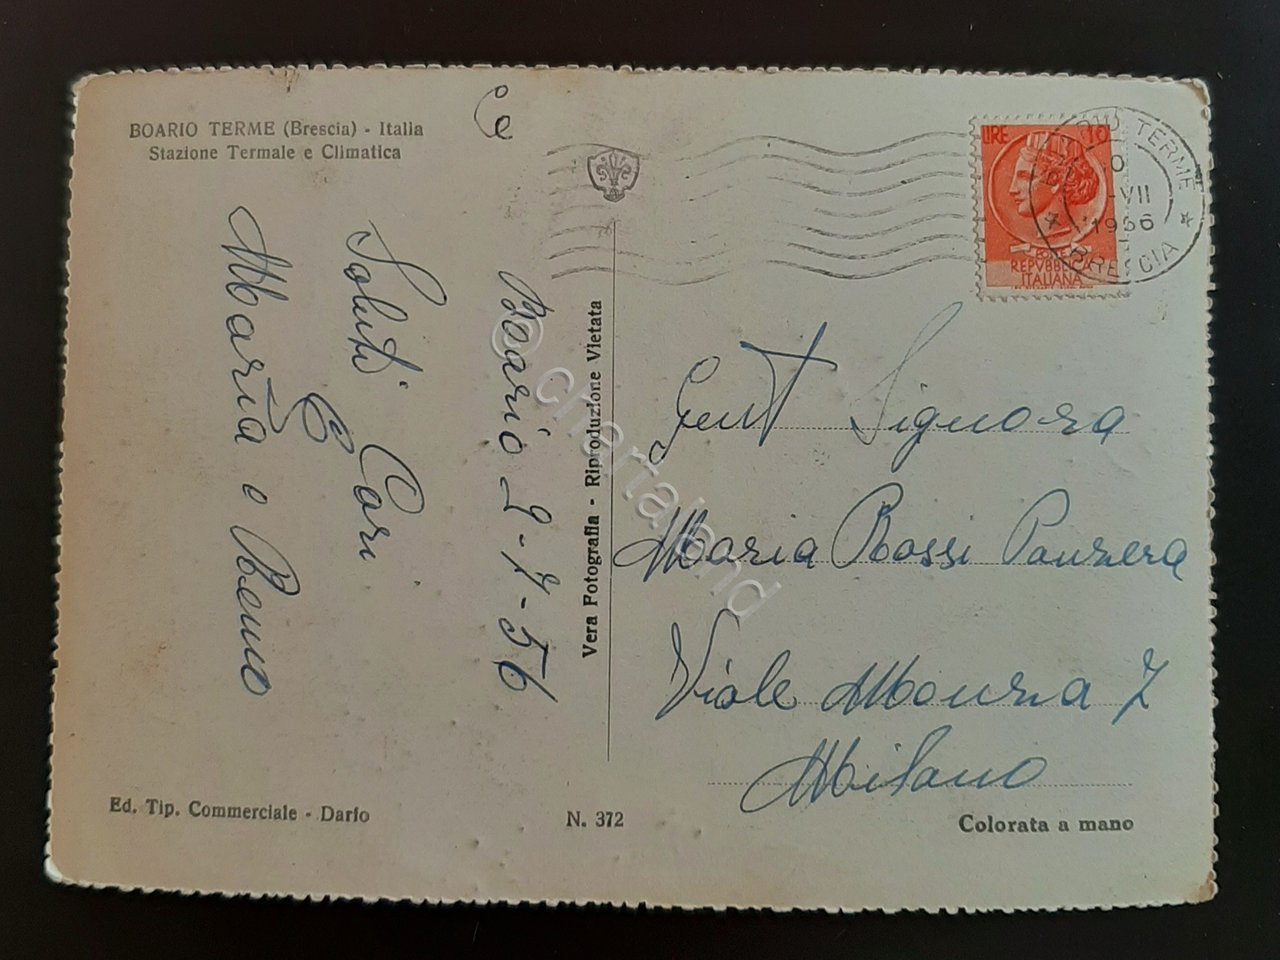 BOARIO TERME (Brescia) - Italia
Stazione Termale e Climatica
Boario 2-7-56
Saluti Cari
Maria e Remo
Vera Fotografia - Riproduzione Vietata
LIRE 10
POSTE
REPVBBLICA
ITALIANA
BOARIO TERME
-VII
1956
BRESCIA
Gent Signora
Maria Rossi Panzera
Viale Monza 7
Milano
Ed. Tip. Commerciale - Darfo
N. 372
Colorata a mano
© chartaland